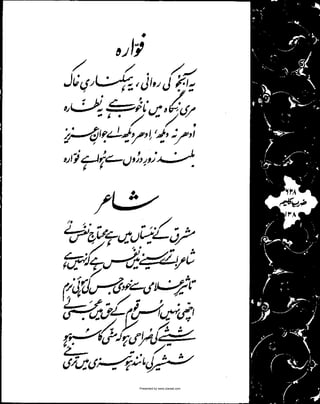 فوّارہ
یہ آبجو کی روانی، یہ ہمکناریِ خاک
مری نگاہ میں ناخوب ہے یہ نظّارہ
اُدھر نہ دیکھ، اِدھر دیکھ اے جوانِ عزیز
بلند زورِ دروں سے ہُوا ہے فوّارہ
شاعر
مشرق کے نیستاں میں ہے محتاجِ نفَس نَے
شاعر! ترے سینے میں نفَس ہے کہ نہیں ہے
تاثیرِ غلامی سے خودی جس کی ہُوئی نرم
اچھّی نہیں اُس قوم کے حق میں عجَمی لَے
شیشے کی صراحی ہو کہ مٹّی کا سبو ہو
شمشیر کی مانند ہو تیزی میں تری مَے
۶۲۸
ضربِ کلیم
۱۳۸
Presented by www.ziaraat.com